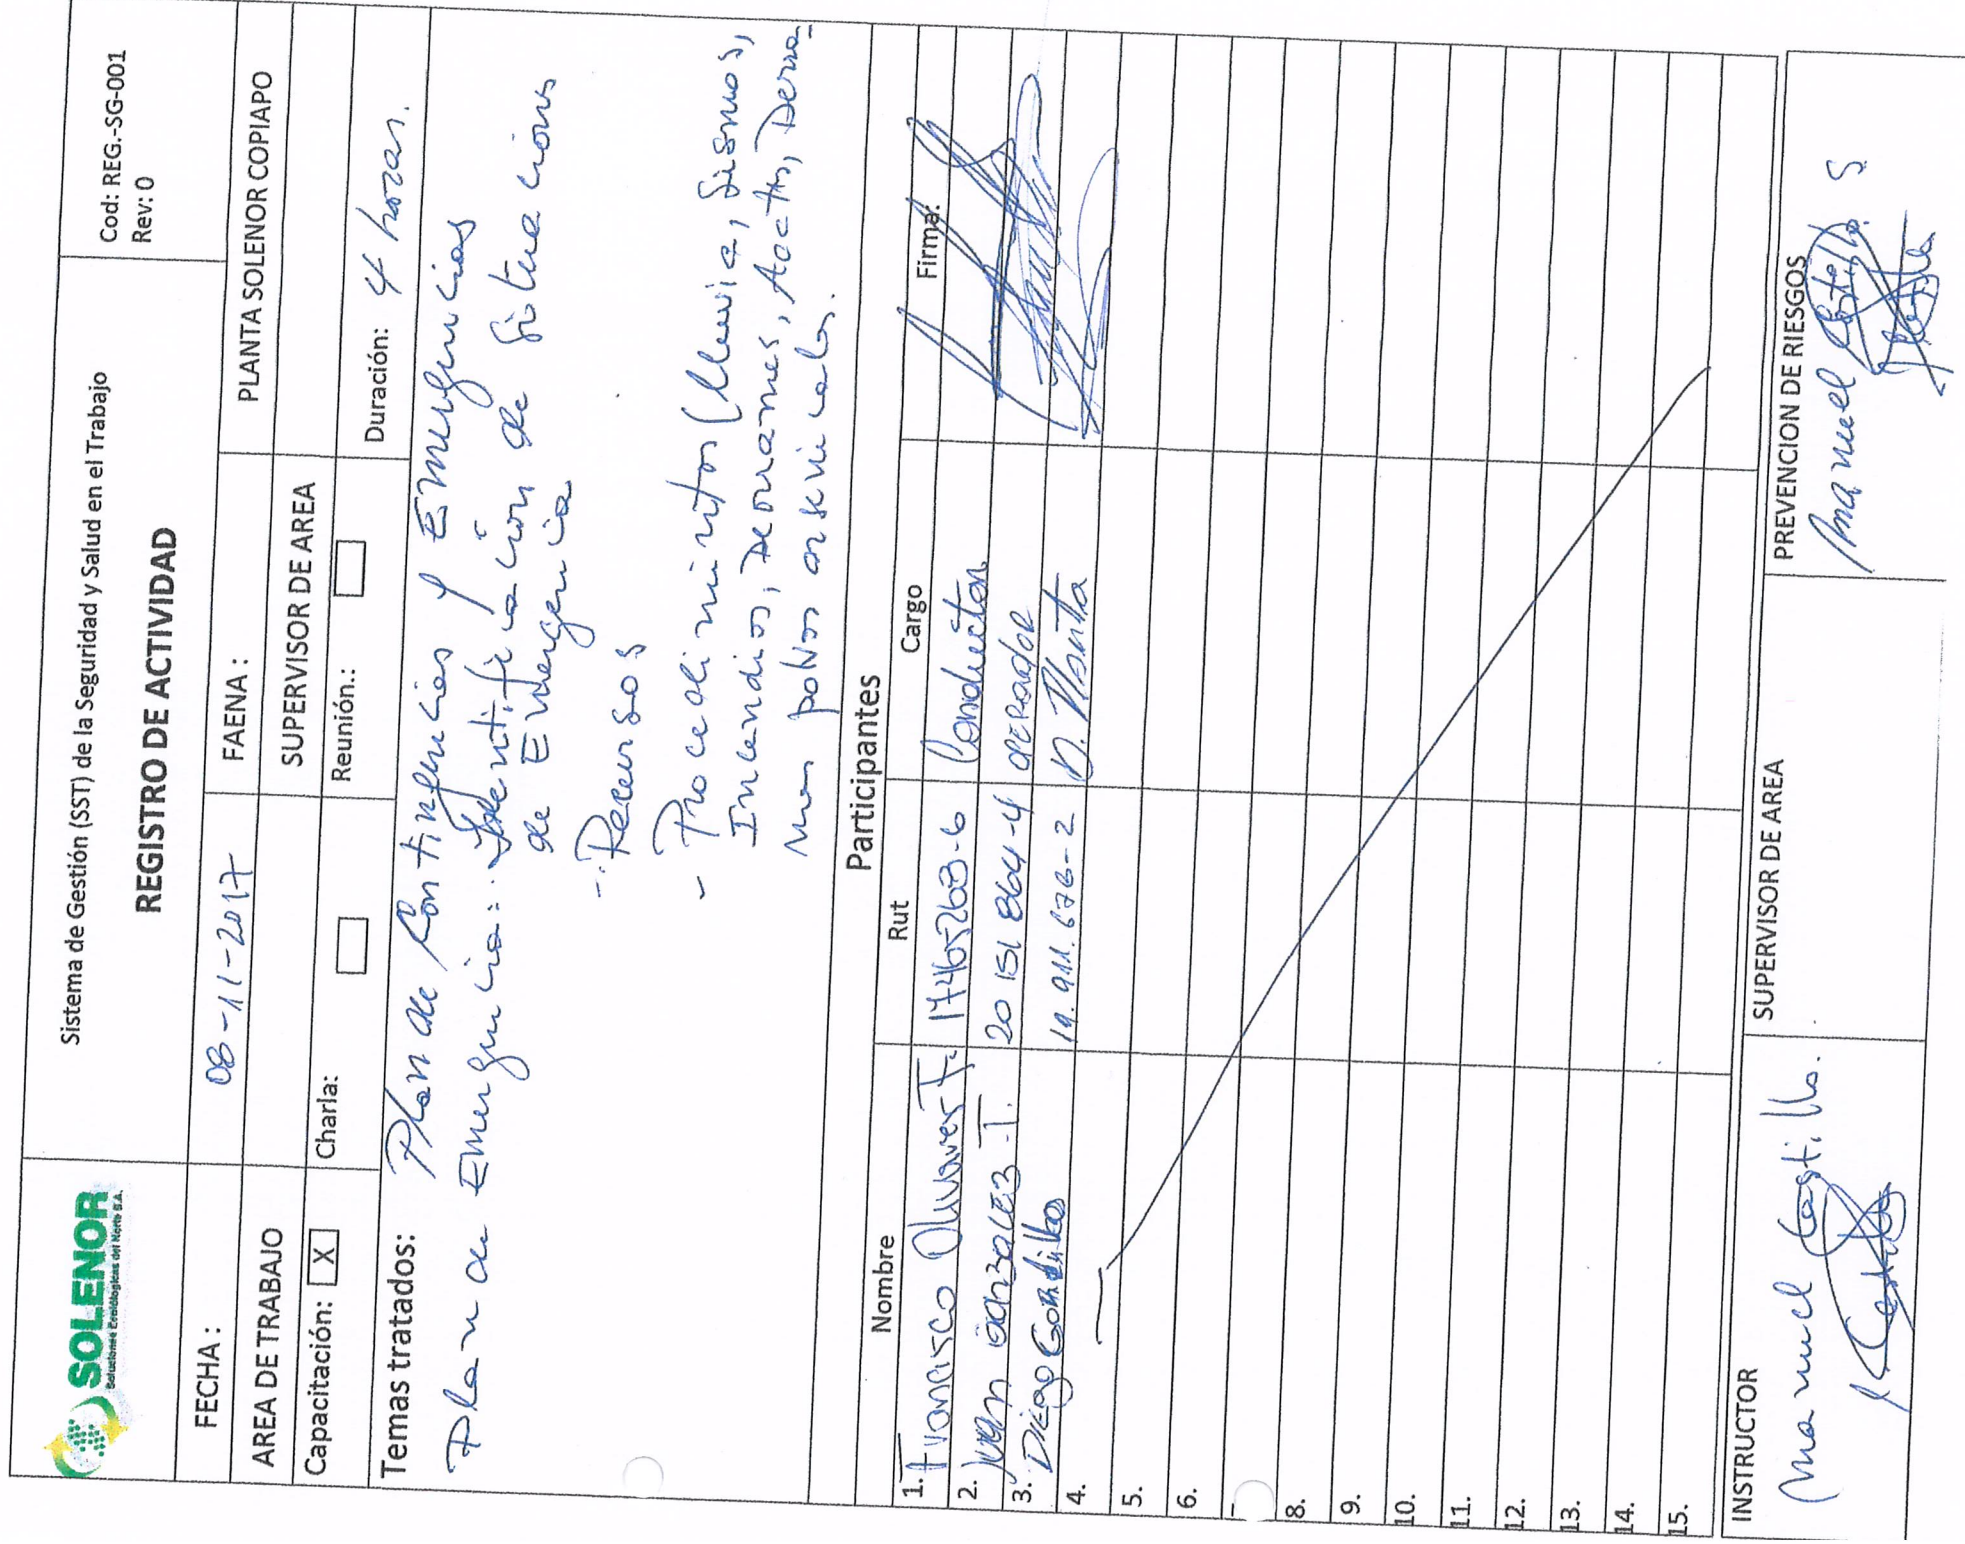 SOLENOR
Soluciones Ecológicas del Norte S.A.
Sistema de Gestión (SST) de la Seguridad y Salud en el Trabajo
REGISTRO DE ACTIVIDAD
Cod: REG.-SG-001
Rev: 0
FECHA : 08-11-2017 FAENA : PLANTA SOLENOR COPIAPO
AREA DE TRABAJO SUPERVISOR DE AREA
Capacitación: X Charla: Reunión.: Duración: 4 horas.
Temas tratados: Plan de Contingencias y Emergencias
Plan de Emergencia: Identificación de Situacions
de Emergencia
- Recursos
- Procedimientos (lluvia, Sismos,
Incendios, Derrames, Derra
mes polvos
Participantes
Nombre Rut Cargo Firma:
1. Francisco Olivares F. 17465263-6 Conductor
2. Juan Gonzalez T. 20 151 864-4 OPERADOR
3. Diego 19.911.676-2 D. Planta
4.
5.
6.
7
8.
9.
10.
11.
12.
13.
14.
15.
INSTRUCTOR SUPERVISOR DE AREA PREVENCION DE RIESGOS
Manuel Castillo. Manuel Castillo S